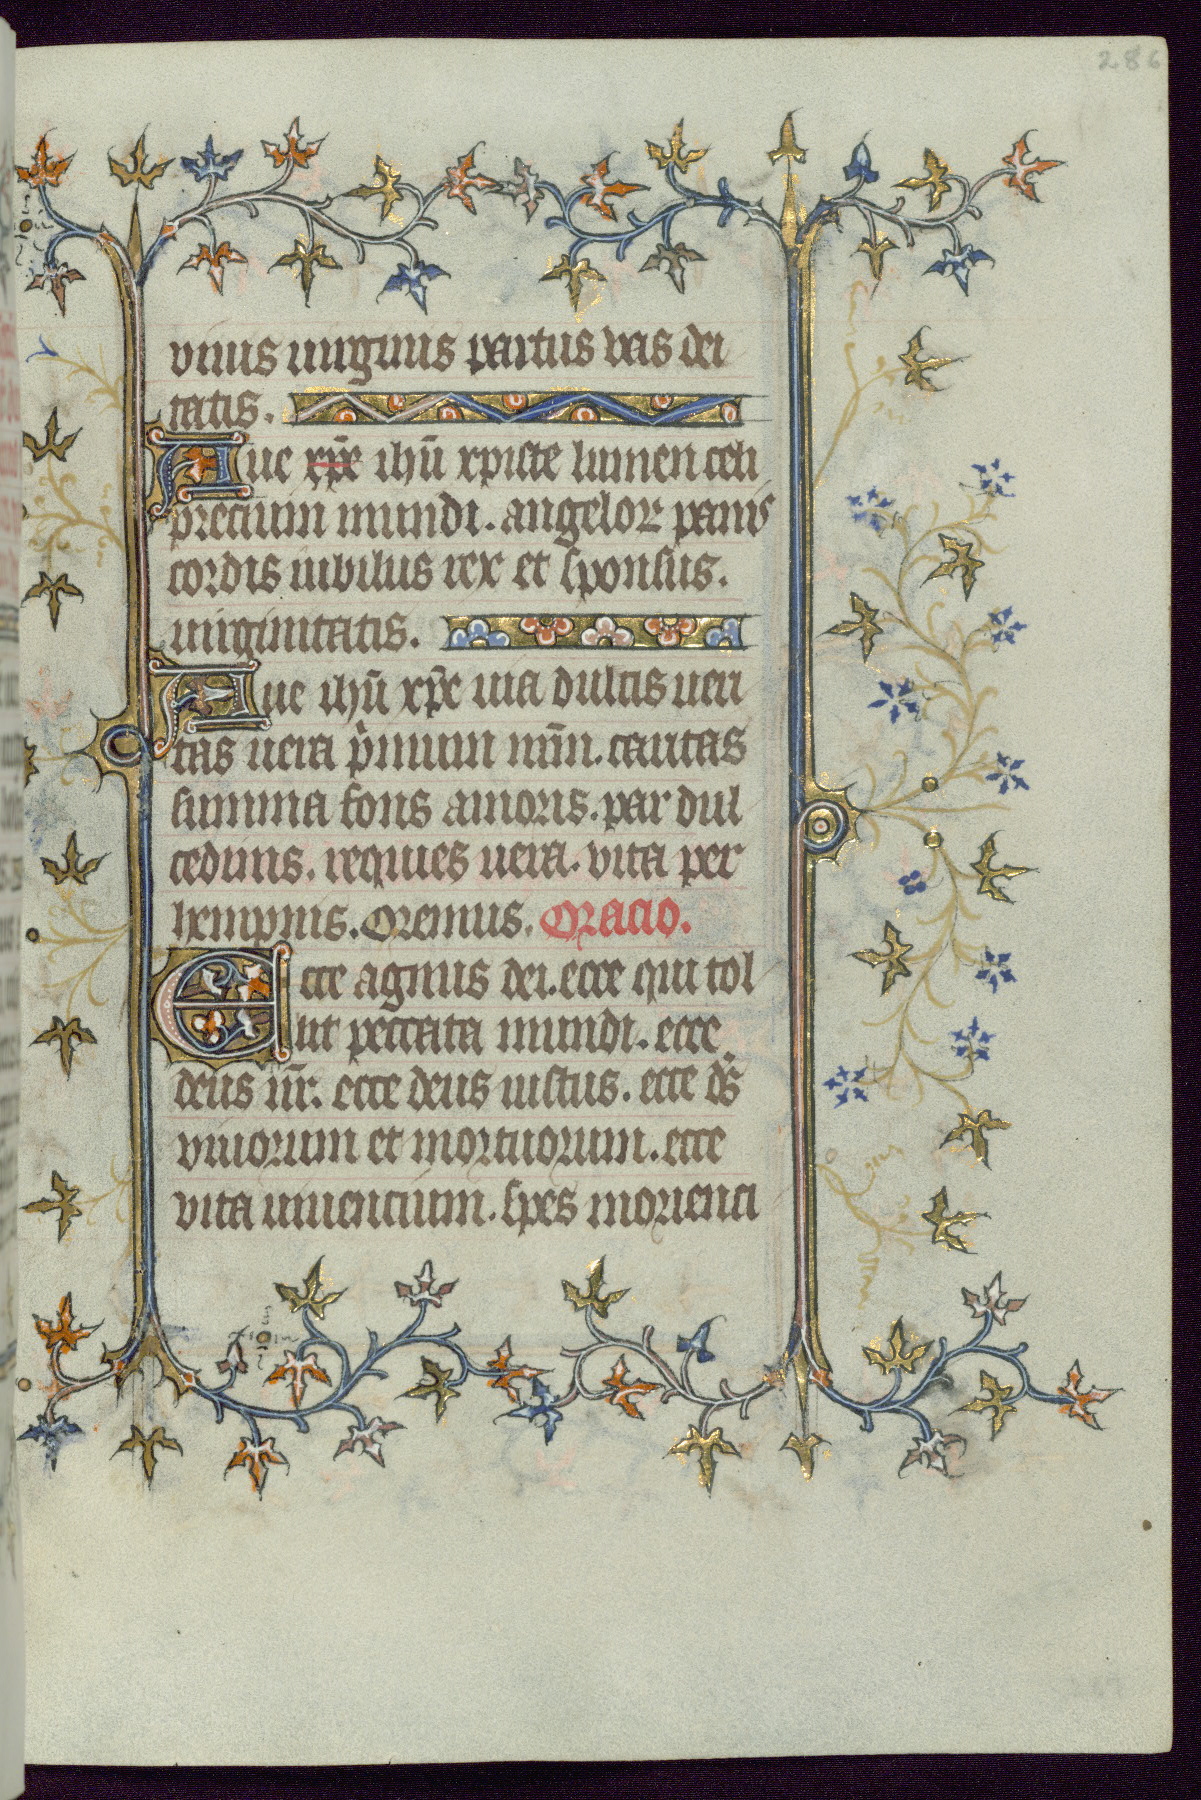 286
viuus uirginis partus vas dei
tatis.
Aue xp̄e ihū xpiste lumen celi
precium mundi. angeloꝝ panis
cordis iubilus rex et sponsus.
uirginitatis.
Aue ihū xp̄e uia dulcis ueri
tas uera p̄mium nr̄m. caritas
summa fons amoris. pax dul
cedinis. requies uera. vita per
hempnis. Oremus. Oracio.
Ecce agnus dei. ecce qui tol
lit peccata mundi. ecce
deus nr̄. ecce deus iustus. ecce dn̄s
viuorum et mortuorum. ecce
vita uiuencium. spes morienci